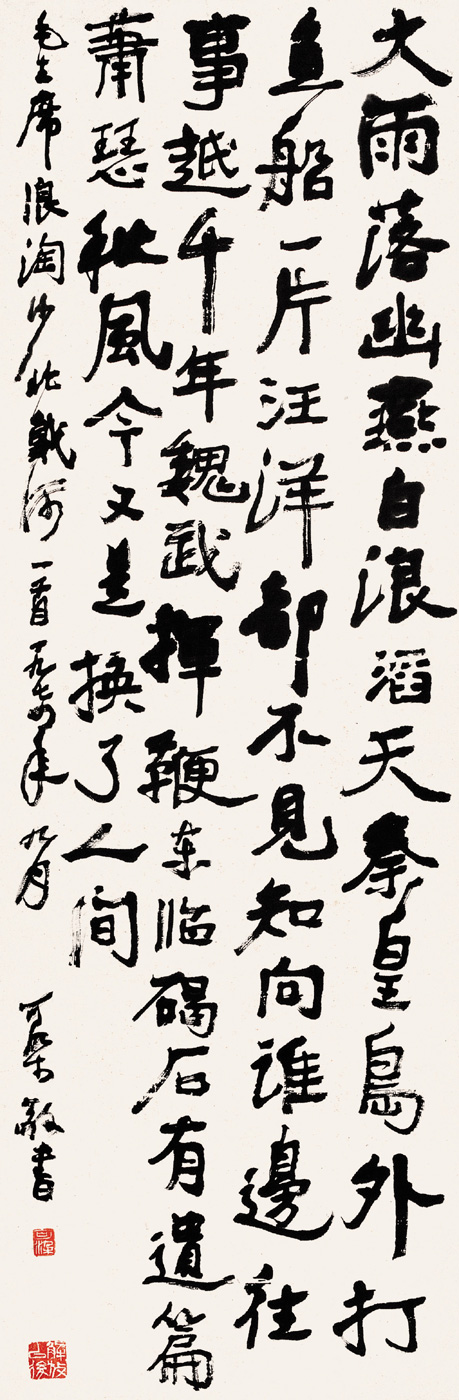 大雨落幽燕白浪滔天秦皇島外打
魚船一片汪洋都不見知向誰邊往
事越千年魏武揮鞭东临碣石有遺篇
蕭瑟秋風今又是換了人间
毛主席浪淘沙北戴河一首一九七四年九月 可染敬書
可染